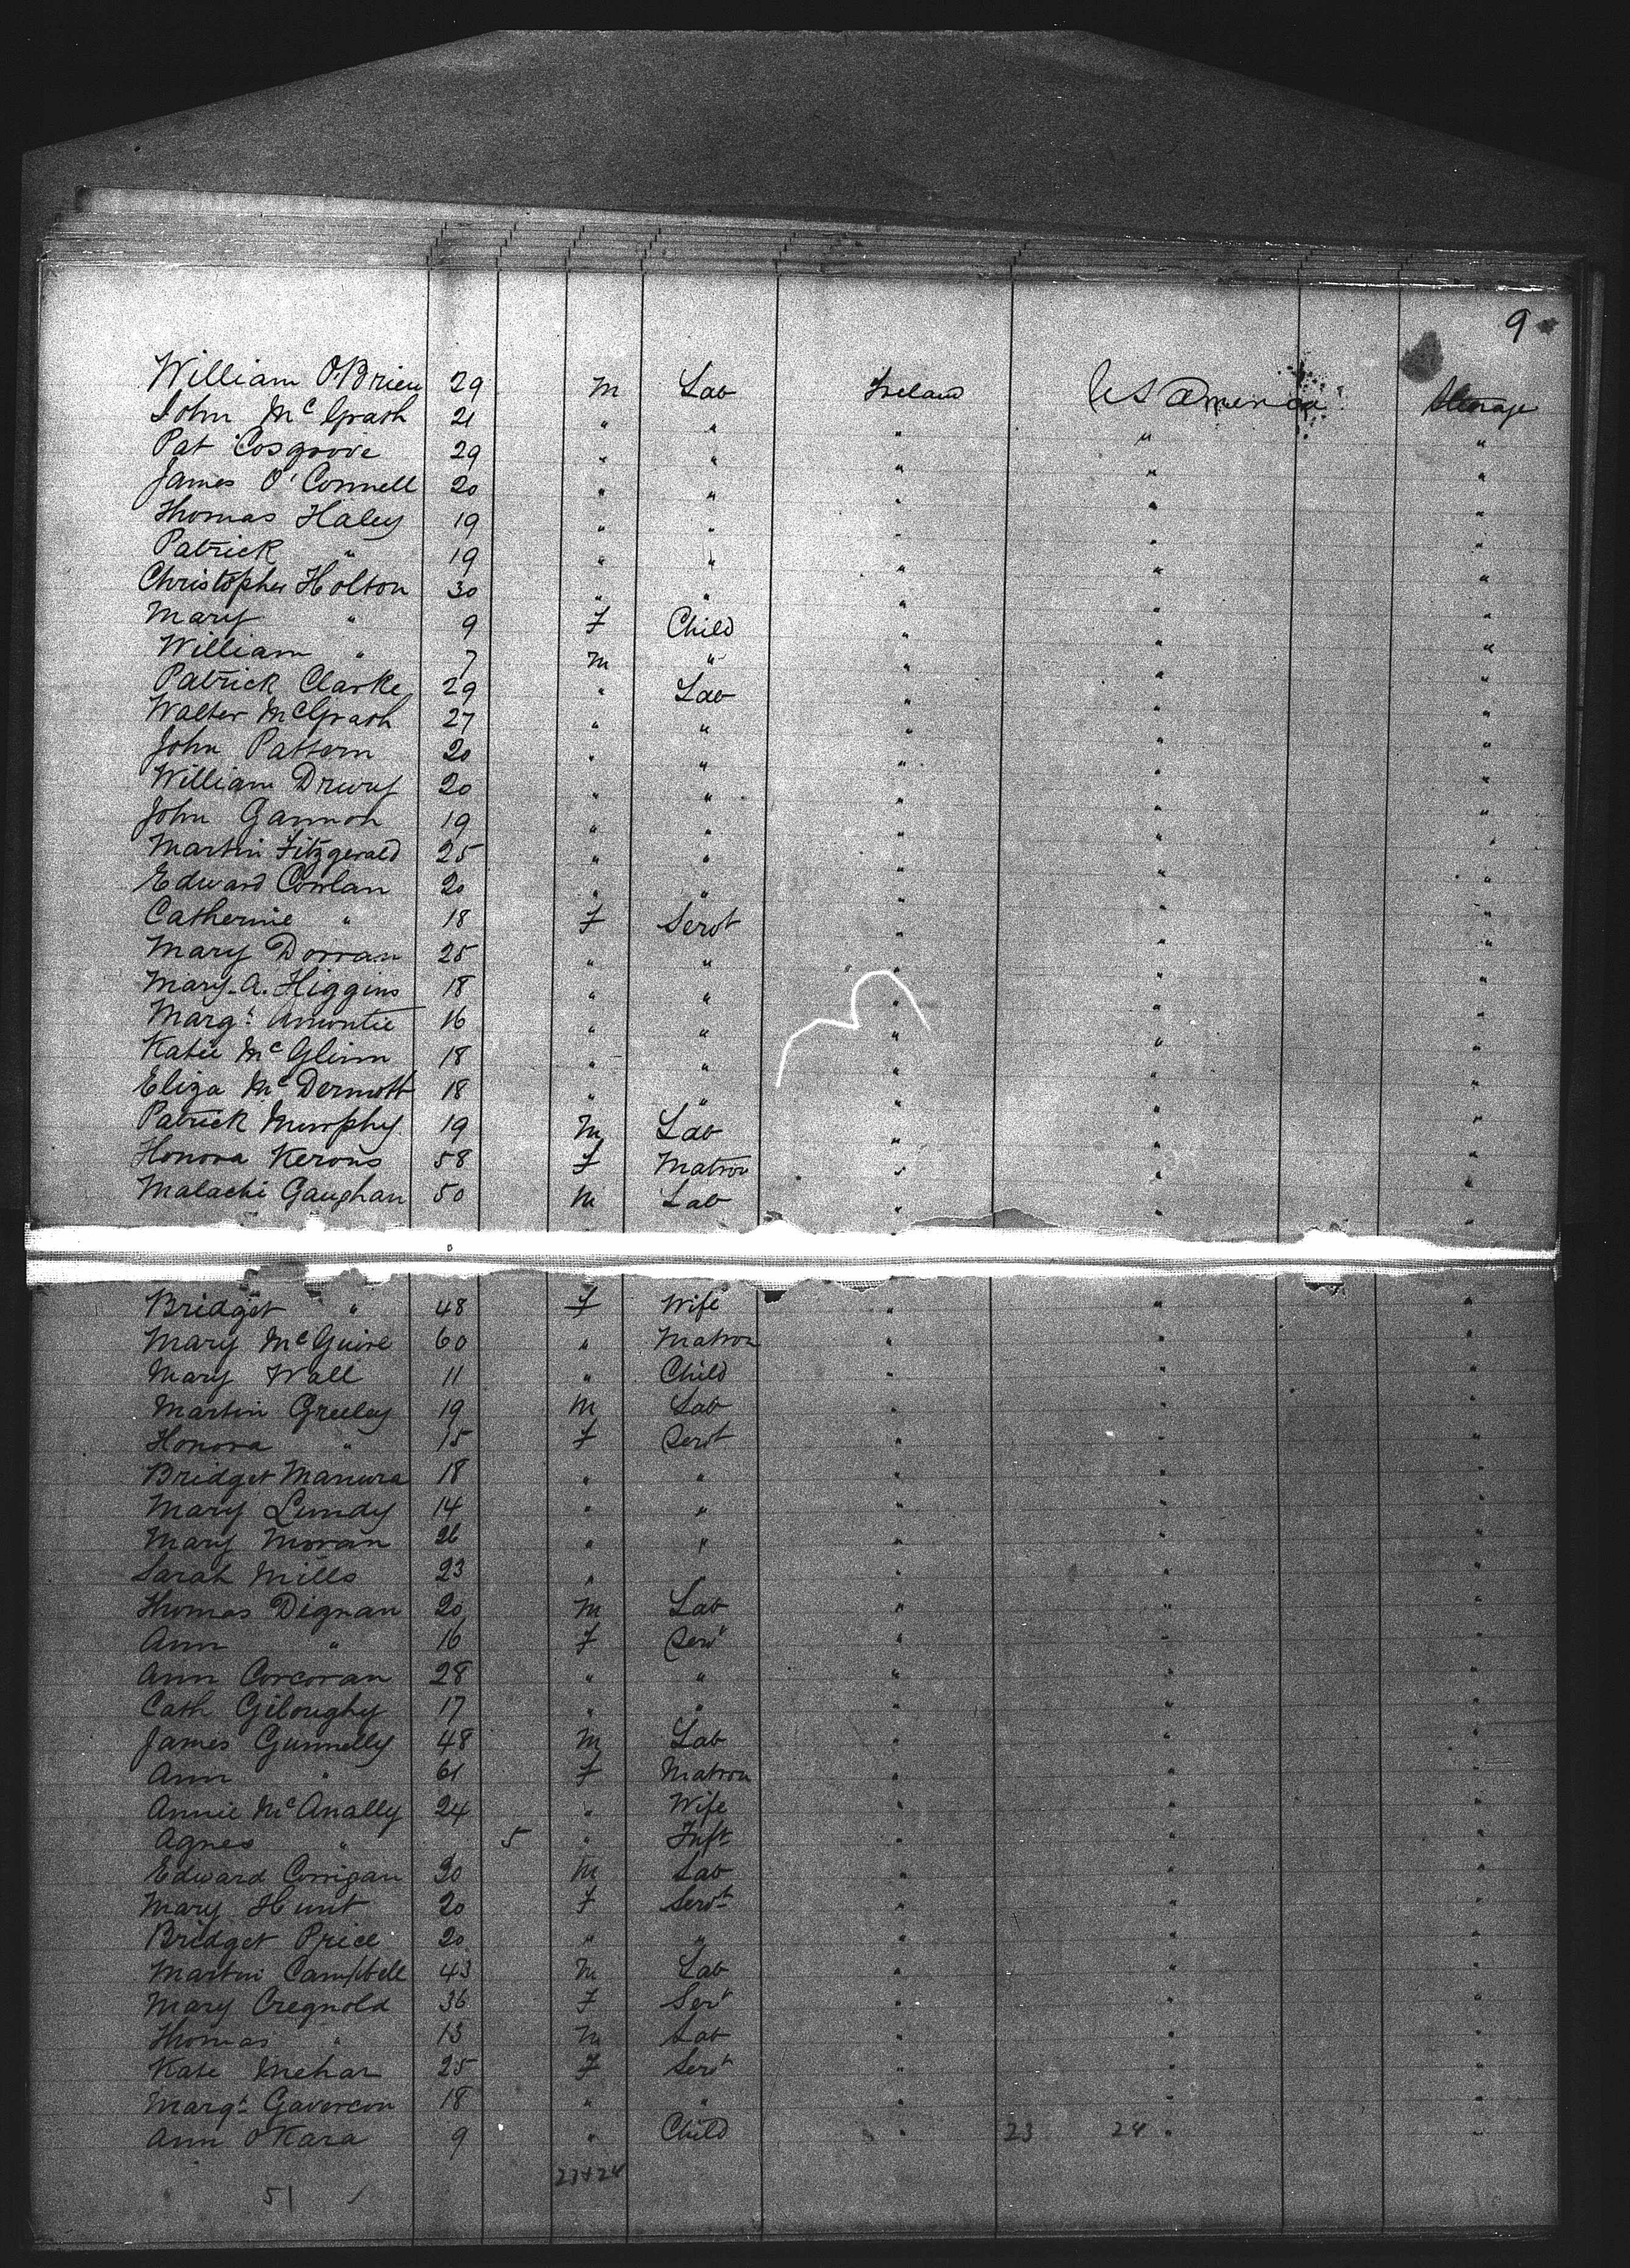 9
William O'Brien 29 M Lab Ireland U S America Steerage
John McGrath 21 " " " " "
Pat Cosgrove 29 " " " " "
James O'Connell 20 " " " " "
Thomas Haley 19 " " " " "
Patrick " 19 " " " " "
Christopher Holton 30 " " " " "
Mary " 9 F Child " " "
William " 7 M " " " "
Patrick Clarke 29 " Lab " " "
Walter McGrath 27 " " " " "
John Pattern 20 " " " " "
William Drury 20 " " " " "
John Gannon 19 " " " " "
Martin Fitzgerald 25 " " " " "
Edward Conlan 20 " " " " "
Catherine " 18 F Servt " " "
Mary Dorran 25 " " " " "
Mary A. Higgins 18 " " " " "
Margt 16 " " " " "
Katie McGlinn 18 " " " " "
Eliza McDermott 18 " " " " "
Patrick Murphy 19 M Lab " " "
Honora Kerons 58 F Matron " " "
Malachi Gaughan 50 M Lab " " "
Bridget " 48 F Wife " " "
Mary McGuire 60 " Matron " " "
Mary Wall 11 " Child " " "
Martin Greeley 19 M Lab " " "
Honora " 15 F Servt " " "
Bridget 18 " " " " "
Mary Lundy 14 " " " " "
Mary Moran 26 " " " " "
Sarah Mills 23 " " " " "
Thomas Dignan 20 M Lab " " "
Ann " 16 F Servt " " "
Ann Corcoran 28 " " " " "
Cath Giloughy 17 " " " " "
James Gunnelly 48 M Lab " " "
Ann " 61 F Matron " " "
Annie McAnally 24 " Wife " " "
Agnes " 5 " Inft " " "
Edward Corrigan 20 M Lab " " "
Mary Hunt 20 F Servt " " "
Bridget Price 20 " " " " "
Martin Campbell 43 M Lab " " "
Mary Cregnold 36 F Servt " " "
Thomas " 13 M Lab " " "
Kate Mehan 25 F Servt " " "
Margt Gavercon 18 " " " " "
Ann O'Kara 9 " Child " 23 24 " "
27+24
51